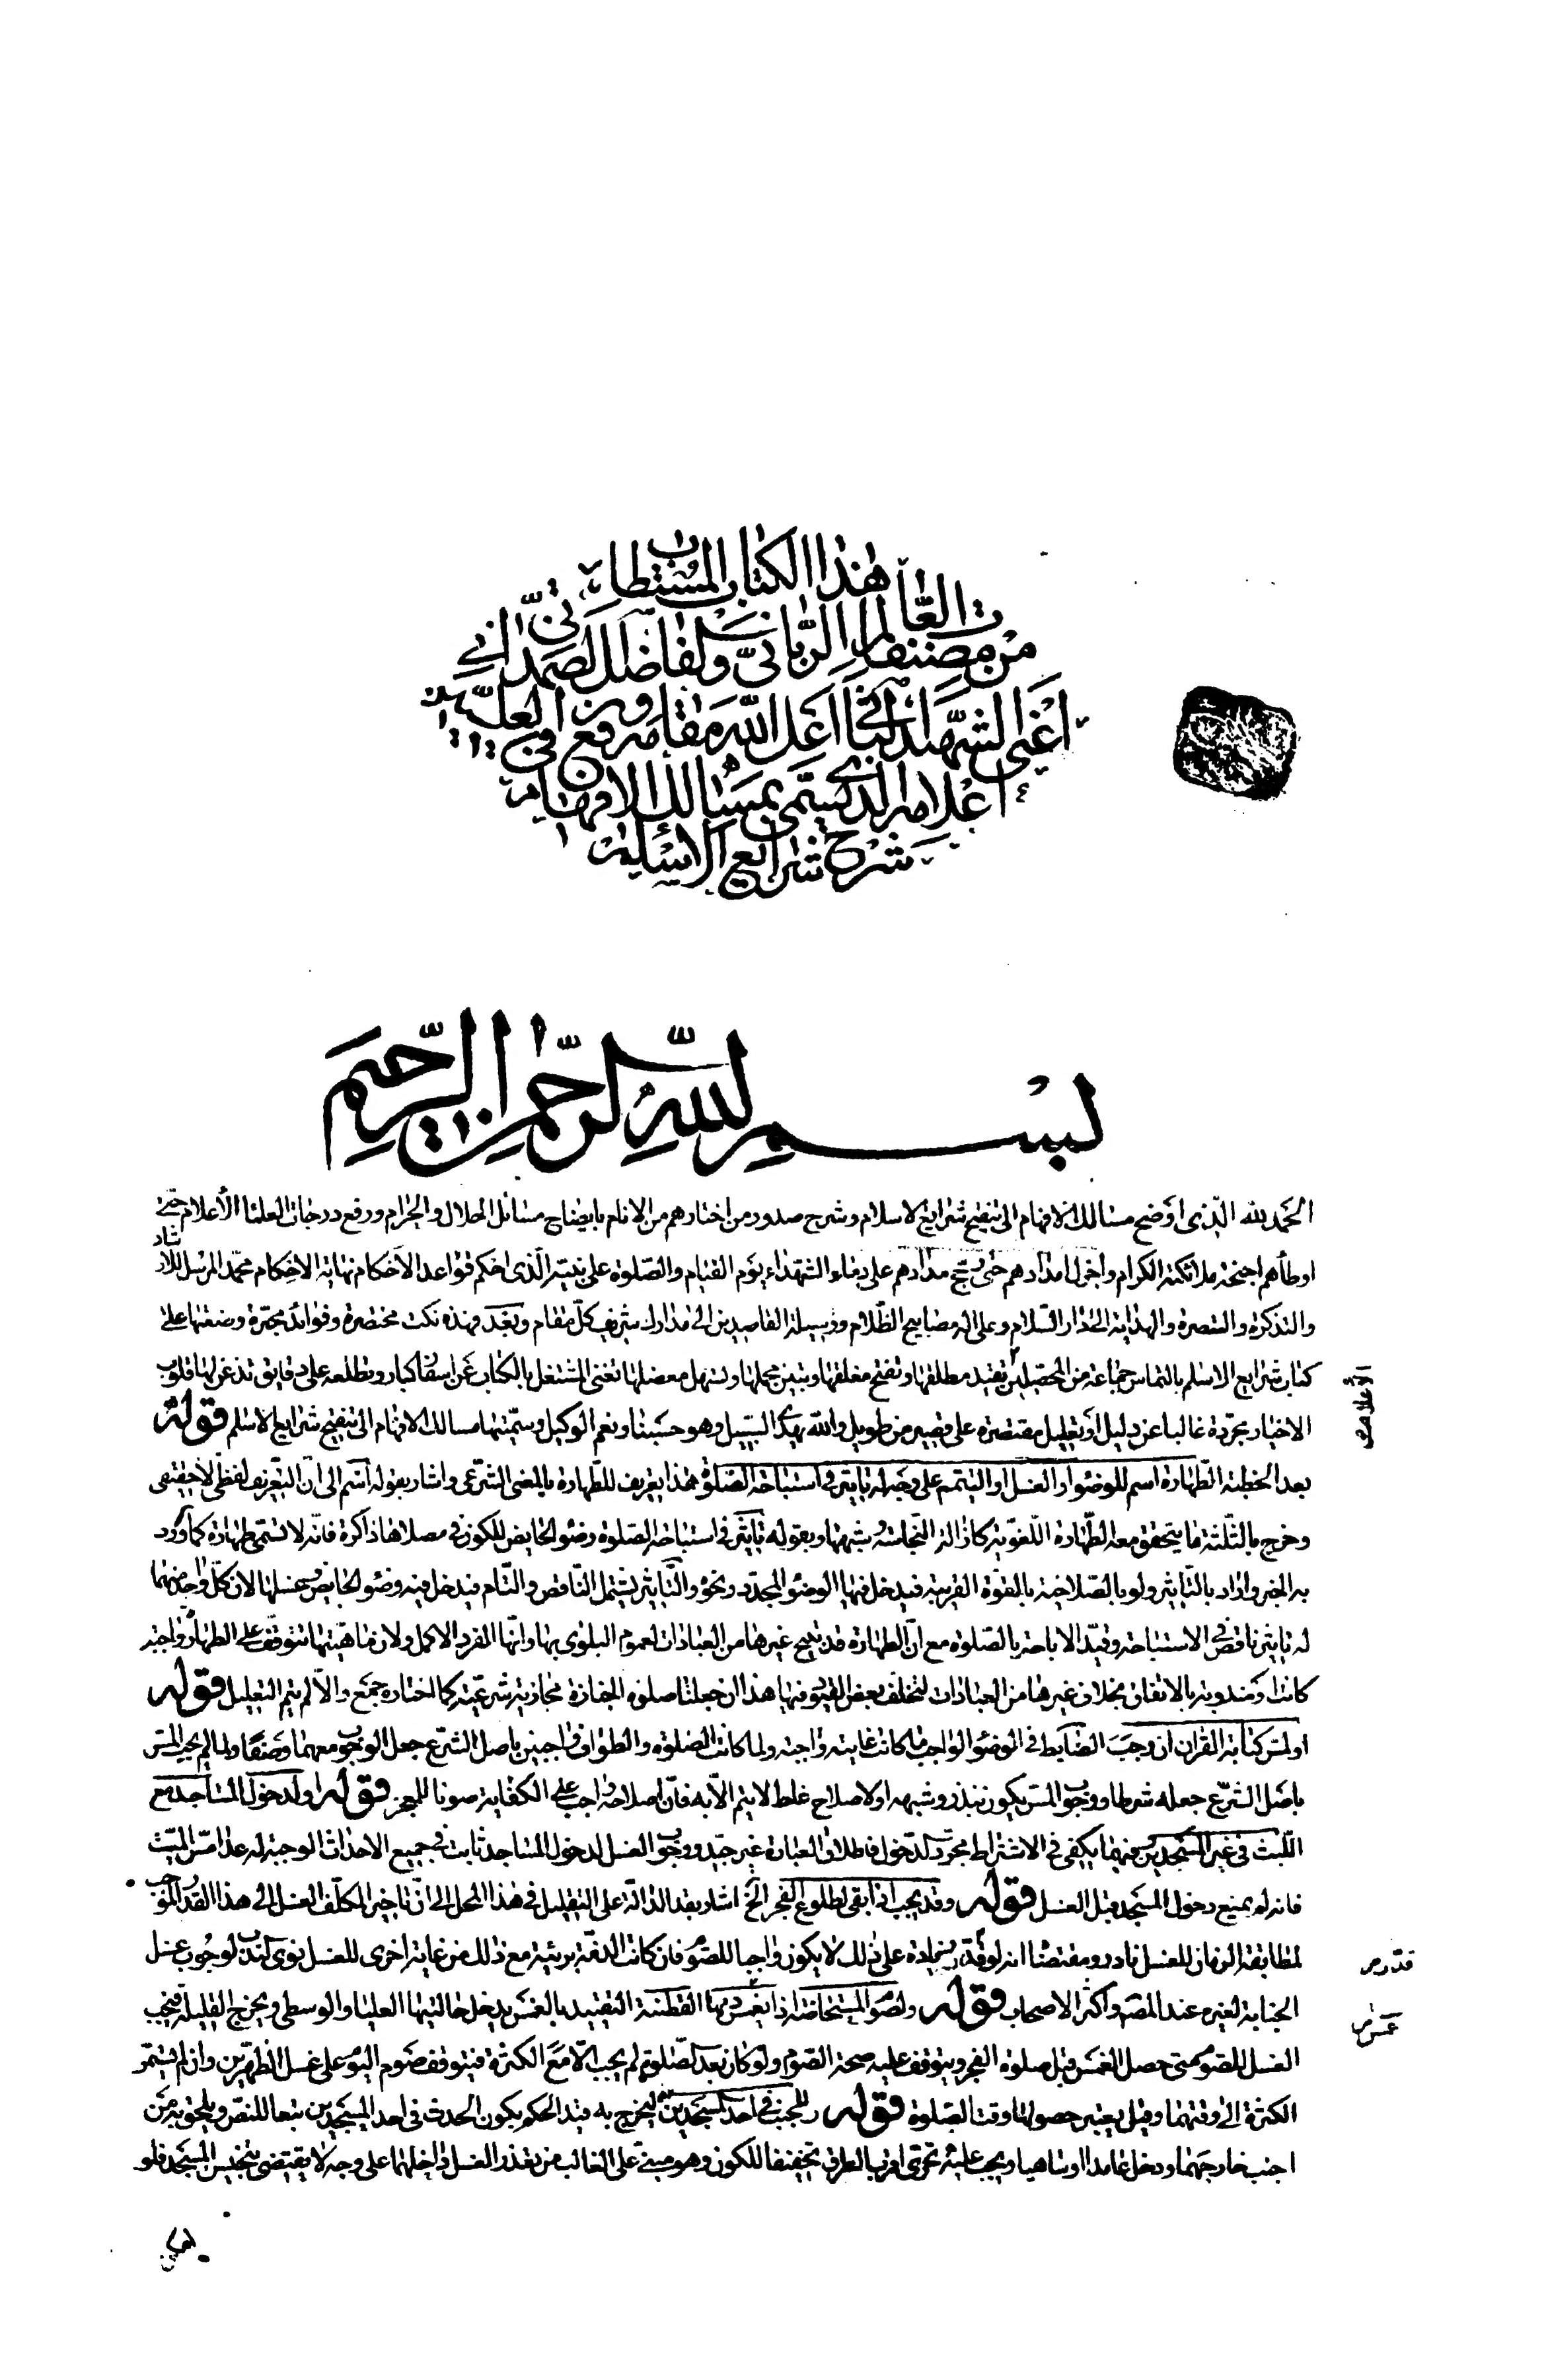 هذا الكتاب المستطاب
من مصنفات العالم الربانى والفاضل الصمدانى
اعنى الشهيد الثانى اعلى الله مقامه ورفع فى العليين
اعلامه الذى يسمى بمسالك الافهام
شرح شرايع الاسلام
بسم الله الرحمن الرحيم
الحمد لله الذى اوضح مسالك الافهام الى تنقيح شرايع الاسلام وشرح صدور من اختارهم من الانام بايضاح مسائل الحلال والحرام ورفع درجات العلماء الأعلام حتى
اوطأهم اجنحة ملائكته الكرام واجرى مدادهم حتى رجح مدادهم على دماء الشهداء يوم القيام والصلوة على نبيه الذى احكم قواعد الأحكام نهاية الاحكام محمد المرسل للارشاد
والتذكرة والتبصرة والهداية الى دار السلام وعلى اله مصابيح الظلام ووسيلة القاصدين الى مدارك شريف كل مقام وبعد فهذه نكت مختصرة وفوائد محررة وضعتها على
كتاب شرايع الاسلم بالتماس جماعة من المحصلين تقيد مطلقها وتفتح مغلقها وتبين مجملها وتسهل معضلها تغنى المشتغل بالكتاب عن اسفار كبار وتطلعه على دقايق تذعن لها قلوب
الاخيار مجردة غالبا عن دليل او تعليل مقتصرة على قصير من طويل والله يهدى السبيل وهو حسبنا ونعم الوكيل وسميتها مسالك الافهام الى تنقيح شرايع الاسلم قوله
بعد الخطبة الطهارة اسم للوضوء او الغسل او التيمم على وجه له تاثير فى استباحة الصلوة هذا تعريف للطهارة بالمعنى الشرعى واشار بقوله اسم الى ان التعريف لفظى لا حقيقى
وخرج بالثلثة ما يتحقق معه الطهارة اللغوية كازالة النجاسة وشبهها وبقوله تاثير فى استباحة الصلوة وضوء الحايض للكون فى مصلاها ذاكرة فانه لا تسمى طهارة كما ورد
به الخبر واراد بالتأثير ولو بالصلاحية بالقوة القريبة فيدخل فيها الوضوء المجدد ونحوه والتأثير يشتمل الناقص والتام فيدخل فيه وضوء الحايض وغسلها لان كل واحد منهما
له تاثير ناقص فى الاستباحة وقيد الاباحة بالصلوة مع ان الطهارة قد تبيح غيرها من العبادات لعموم البلوى بها وانها الفرد الاكمل ولان ماهيتها تتوقف على الطهارة واجبة
كانت او مندوبة بالاتفاق بخلاف غيرها من العبادات لتخلف بعض القيود فيها هذا ان جعلنا صلوة الجنازة مجازية شرعية كما اختاره جمع والا لم يتم التعليل قوله
او لمس كتابة القران ان وجب الضابط فى الوضوء الواجب ما كانت غايته واجبة ولما كانت الصلوة والطواف واجبين باصل الشرع جعل الوجوب معهما وصفا ولما لم يجب المس
باصل الشرع جعله شرطا ووجوب المس يكون بنذر وشبهه او لاصلاح غلط لا يتم الا به فان اصلاحه واجب على الكفاية صونا للمعجز قوله او لدخول المساجد مع
اللبث فى غير المسجدين فيهما يكفى فى الاشتراط مجرد الدخول فاطلاق العبارة غير جيد ووجوب الغسل لدخول المساجد ثابت فى جميع الاحداث الموجبة له عدا مس الميت
فانه لم يمنع دخول المسجد قبل الغسل قوله وقد يجب اذا بقى لطلوع الفجر الخ اشار بقد الدالة على التقليل فى هذا المحل الى ان تاخير المكلف الغسل الى هذا القدر الموجب
لمطابقة الزمان للغسل نادر ومقتضاه انه لو قدمه بزيادة على ذلك لا يكون واجبا للصوم فان كانت الذمة بريئة مع ذلك من غاية اخرى للغسل نوى الندب لوجوب غسل
الجنابة لغيره عند المصم واكثر الاصحاب قوله ولصوم المستحاضة اذا غمس دمها القطنة التقييد بالغمس يدخل حالتيها العليا والوسطى ويخرج القليلة فيجب
الغسل للصوم متى حصل الغمس قبل صلوة الفجر ويتوقف عليه صحة الصوم ولو كان بعد الصلوة لم يجب الا مع الكثرة فيتوقف صوم اليوم على غسل الظهرين وان لم تستمر
الكثرة الى وقتهما وقيل يعتبر حصولها وقت الصلوة قوله للمجنب فى احد المسجدين ليخرج به قيد الحكم بكون الحدث فى احد المسجدين تبعا للنص ويلحق به من
اجنب خارجهما ودخل عامدا او ساهيا ويجب عليه تحرى اقرب الطرق تخفيفا للكون وهو مبنى على الغالب من تعذر الغسل داخلهما على وجه لا يقتضى تنجيس المسجد فلو